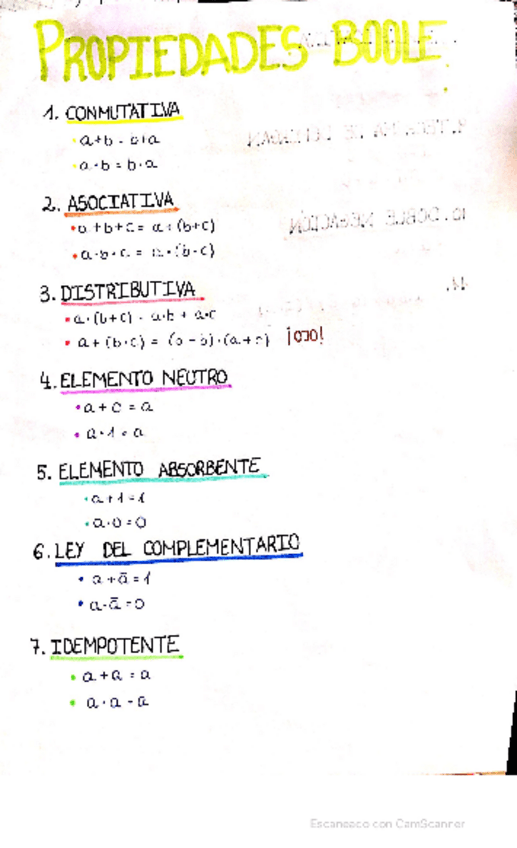 PROPIEDADES BOOLE
1. CONMUTATIVA
a+b = b+a
a·b = b·a
2. ASOCIATIVA
a+b+c = a+(b+c)
a·b·c = a·(b·c)
3. DISTRIBUTIVA
a·(b+c) = a·b + a·c
a+(b·c) = (a+b)·(a+c) ¡OJO!
4. ELEMENTO NEUTRO
a+0 = a
a·1 = a
5. ELEMENTO ABSORBENTE
a+1=1
a·0=0
6. LEY DEL COMPLEMENTARIO
a+ā=1
a·ā=0
7. IDEMPOTENTE
a+a = a
a·a = a
Escaneado con CamScanner